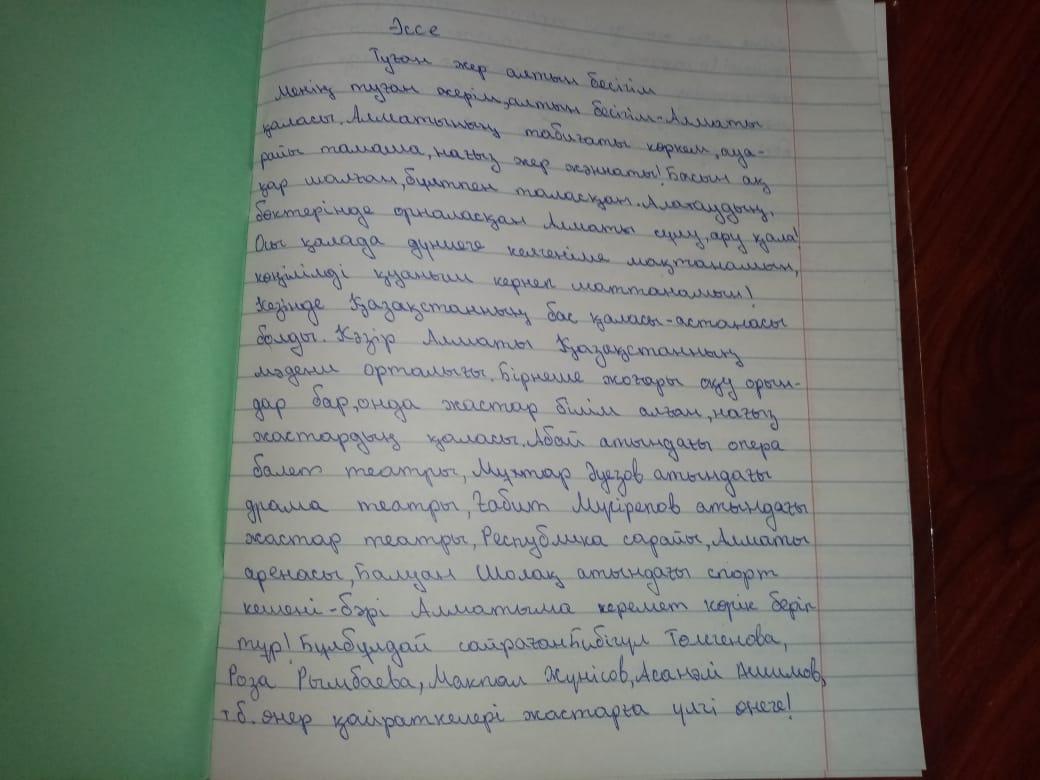 Эссе
Туған жер алтын бесігім
Менің туған жерім, алтын бесігім-Алматы
қаласы. Алматының табиғаты көркем, ауа-
райы тамаша, нағыз жер жәннаты! Басын ақ
қар шалған, бұлтпен таласқан. Алатаудың,
бөктерінде орналасқан Алматы сұлу, ару қала!
Осы қалада дүниеге келгеніме мақтанамын,
көңілімді қуаныш кернеп шаттанамын!
Кезінде Қазақстанның бас қаласы-астанасы
болды. Кәзір Алматы Қазақстанның
мәдени орталығы. Бірнеше жоғары оқу орын-
дар бар, онда жастар білім алған, нағыз
жастардың қаласы. Абай атындағы опера
балет театры, Мұхтар Әуезов атындағы
драма театры, Ғабит Мүсірепов атындағы
жастар театры, Республика сарайы, Алматы
аренасы, Балуан Шолақ атындағы спорт
кешені-бәрі Алматыма керемет көрік беріп
тұр! Бұлбұлдай сайраған Бибігүл Төлегенова,
Роза Рымбаева, Мақпал Жүнісов, Асанәлі Ашимов,
т.б. өнер қайраткелері жастарға үлгі өнеге!